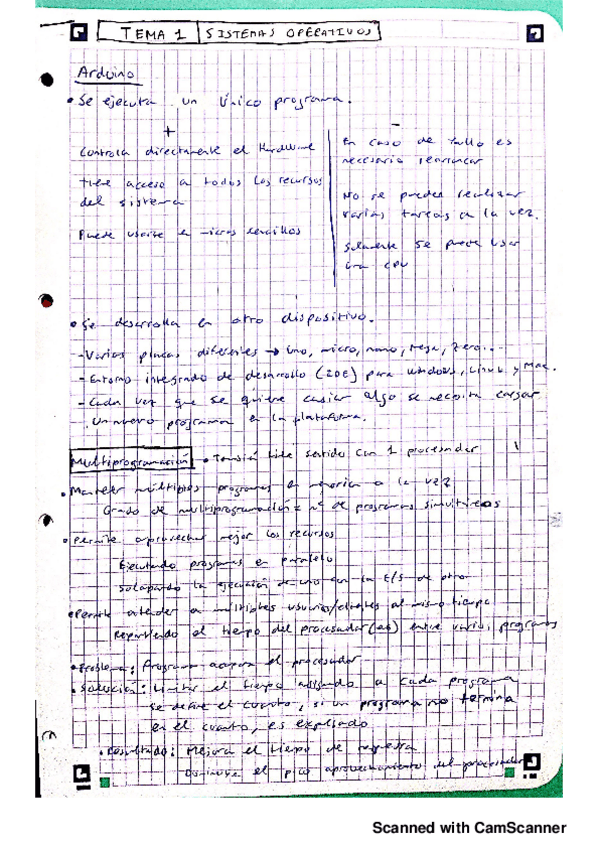 TEMA 1 SISTEMAS OPERATIVOS
Arduino
• Se ejecuta un único programa.
+
Controla directamente el Hardware
Tiene acceso a todos los recursos
del sistema
Puede usarse en micros sencillos
-
En caso de fallo es
necesario rearrancar
No se puedes realizar
varias tareas a la vez.
Solamente se puede usar
una CPU
• Se desarrolla en otro dispositivo.
- Varias placas diferentes → Uno, micro, nano, Mega, Zero...
- Entorno integrado de desarrollo (IDE) para windows, Linux y Mac.
- Cada vez que se quiere algo se necesita cargar
Un nuevo programa en la plataforma.
Multiprogramación • También tiene sentido con 1 procesador
• Mantener múltiples programas en memoria a la vez
Grado de multiprogramación = nº de programas simultáneos
• Permite aprovechar mejor los recursos
Ejecutando programas en paralelo
solapando la ejecución de uno con la E/S de otro
• Permite atender a múltiples usuarios/clientes al mismo tiempo
repartiendo el tiempo del procesador(es) entre varios programas
• Problema: Programa acapara el procesador
• Solución: Limitar el tiempo asignado a cada programa
se define el cuanto, si un programa no termina
en el cuanto, es expulsado
• Resultado: Mejora el tiempo de respuesta
Disminuye el aprovechamiento del procesador
Scanned with CamScanner